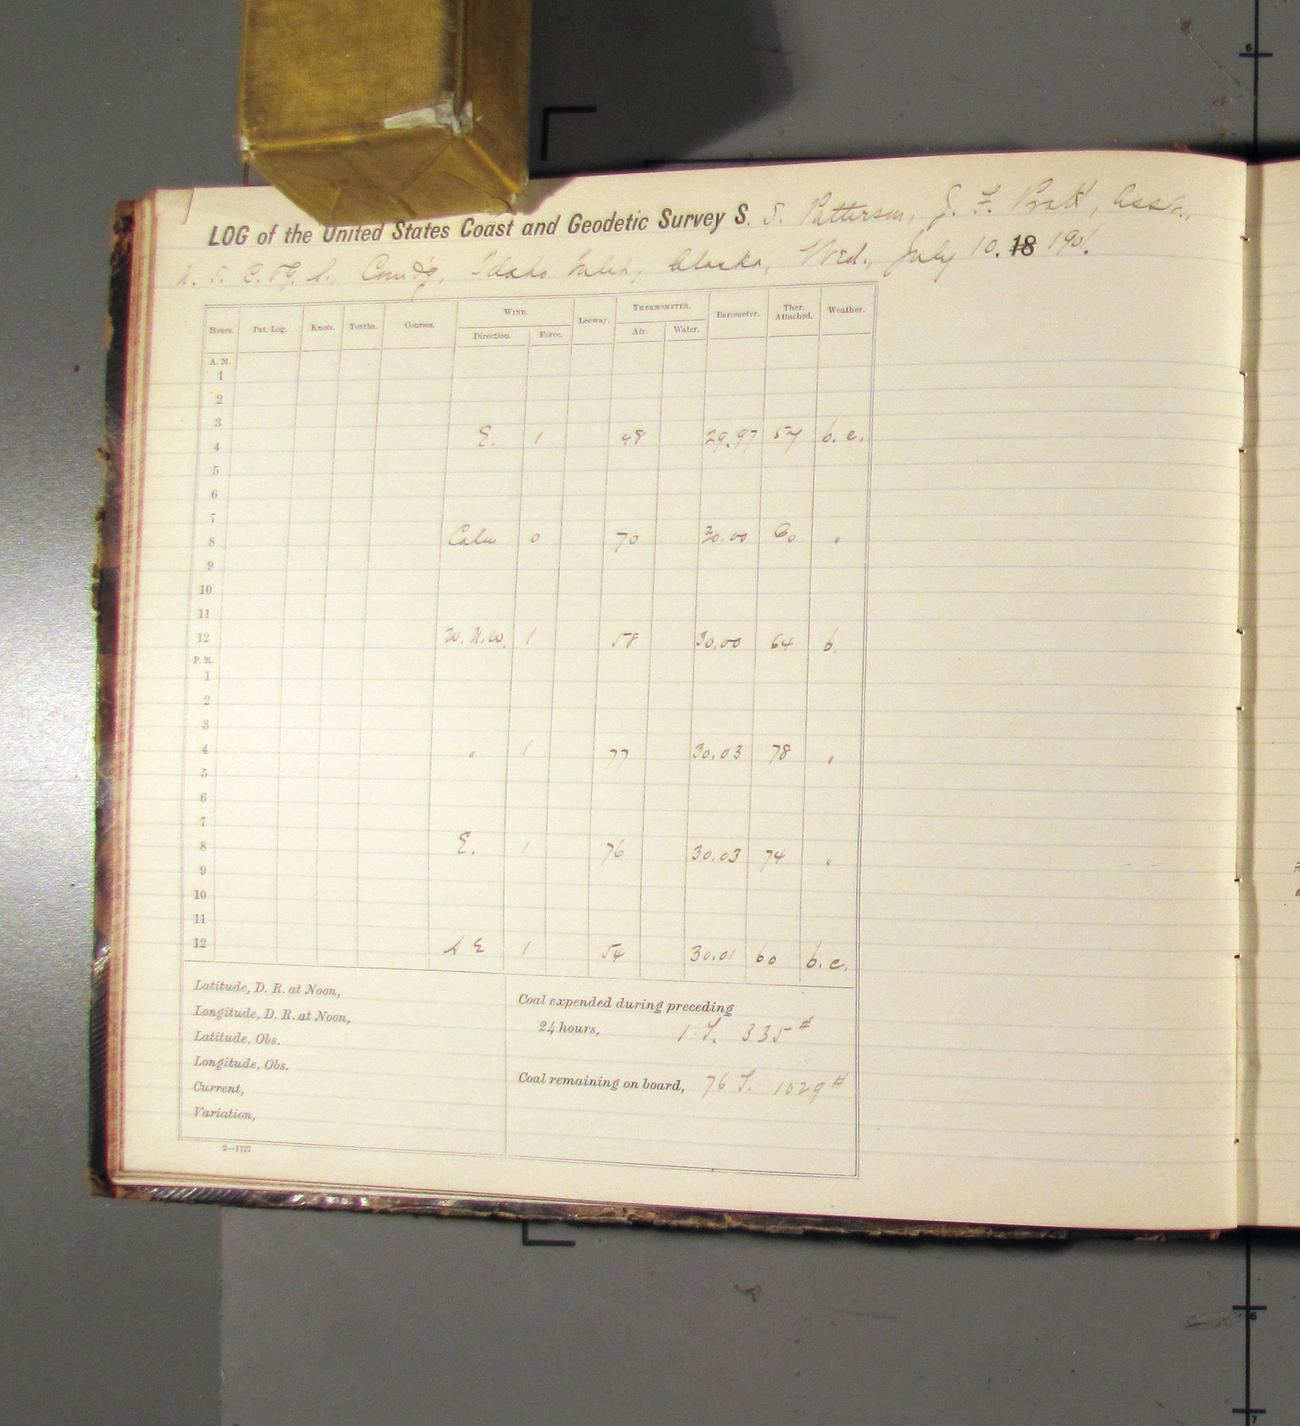 LOG of the United States Coast and Geodetic Survey S. S. Patterson, J. F. Pratt, Asst.,
U. S. C. & G. S. Comd'g, Idaho Inlet, Alaska, Wed., July 10. 18 1901.
Hours. Pat. Log. Knots. Tenths. Courses. WIND. Leeway. THERMOMETER. Barometer. Ther. Attached. Weather.
Direction. Force. Air. Water.
A. M.
1
2
3
4 E. 1 48 29.97 57 b. c.
5
6
7
8 Calm 0 70 30.00 60 "
9
10
11
12 W. N. W. 1 58 30.00 64 b.
P. M.
1
2
3
4 " 1 77 30.03 78 "
5
6
7
8 E. 1 76 30.03 74 "
9
10
11
12 S E 1 54 30.01 60 b. c.
Latitude, D. R. at Noon,
Longitude, D. R. at Noon,
Latitude, Obs.
Longitude, Obs.
Current,
Variation,
Coal expended during preceding
24 hours, 1 T. 335 #
Coal remaining on board, 76 T. 1029 #
2—1727
6
6
7